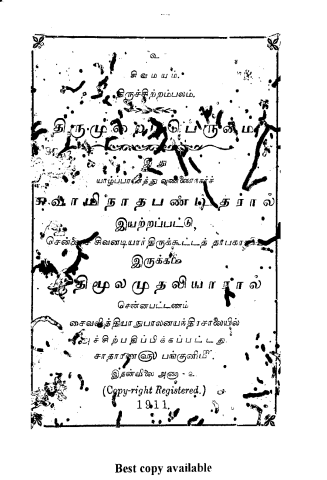 உ
சிவமயம்.
திருச்சிற்றம்பலம்.
திருமுறைப்பெருமை
இது
யாழ்ப்பாணத்து வண்ணார்
சுவாமிநாதபண்டிதரால்
இயற்றப்பட்டு,
சென்னை சிவனடியார்திருக்கூட்டத்
இருக்கும்
திமூலமுதலியாரால்
சென்னபட்டணம்
சைவவித்தியாநுபாலனயந்திரசாலையில்
அச்சிற்பதிப்பிக்கப்பட்டது.
சாதாரண௵ பங்குனி௴
இதன்விலை அணா - உ
(Copy-right Registered.)
1911.
Best copy available